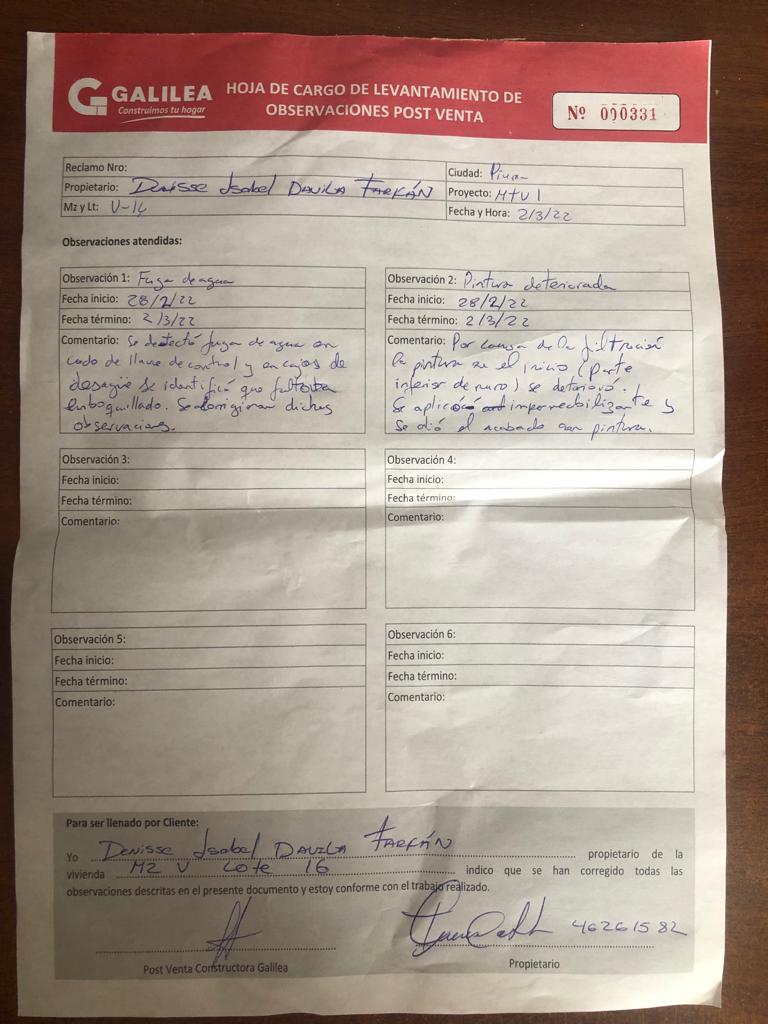 GALILEA
Construimos tu hogar
HOJA DE CARGO DE LEVANTAMIENTO DE
OBSERVACIONES POST VENTA
Nº 000331
Reclamo Nro:
Propietario: Denisse Isabel Davila Farfán
Mz y Lt: V-16
Ciudad: Piura
Proyecto: MTV I
Fecha y Hora: 2/3/22
Observaciones atendidas:
Observación 1: Fuga de agua
Fecha inicio: 28/2/22
Fecha término: 2/3/22
Comentario: Se detectó fuga de agua en
codo de llave de control y en cajas de
desagüe se identificó que faltaba
emboquillado. Se corrigieron dichas
observaciones.
Observación 2: Pintura deteriorada
Fecha inicio: 28/2/22
Fecha término: 2/3/22
Comentario: Por causa de la filtración
la pintura en el inicio (parte
inferior de muro) se deterioró.
Se aplicó impermeabilizante y
se dió el acabado con pintura.
Observación 3:
Fecha inicio:
Fecha término:
Comentario:
Observación 4:
Fecha inicio:
Fecha término:
Comentario:
Observación 5:
Fecha inicio:
Fecha término:
Comentario:
Observación 6:
Fecha inicio:
Fecha término:
Comentario:
Para ser llenado por Cliente:
Yo Denisse Isabel Davila Farfán propietario de la
vivienda MZ V Lote 16 indico que se han corregido todas las
observaciones descritas en el presente documento y estoy conforme con el trabajo realizado.
46261582
Post Venta Constructora Galilea
Propietario